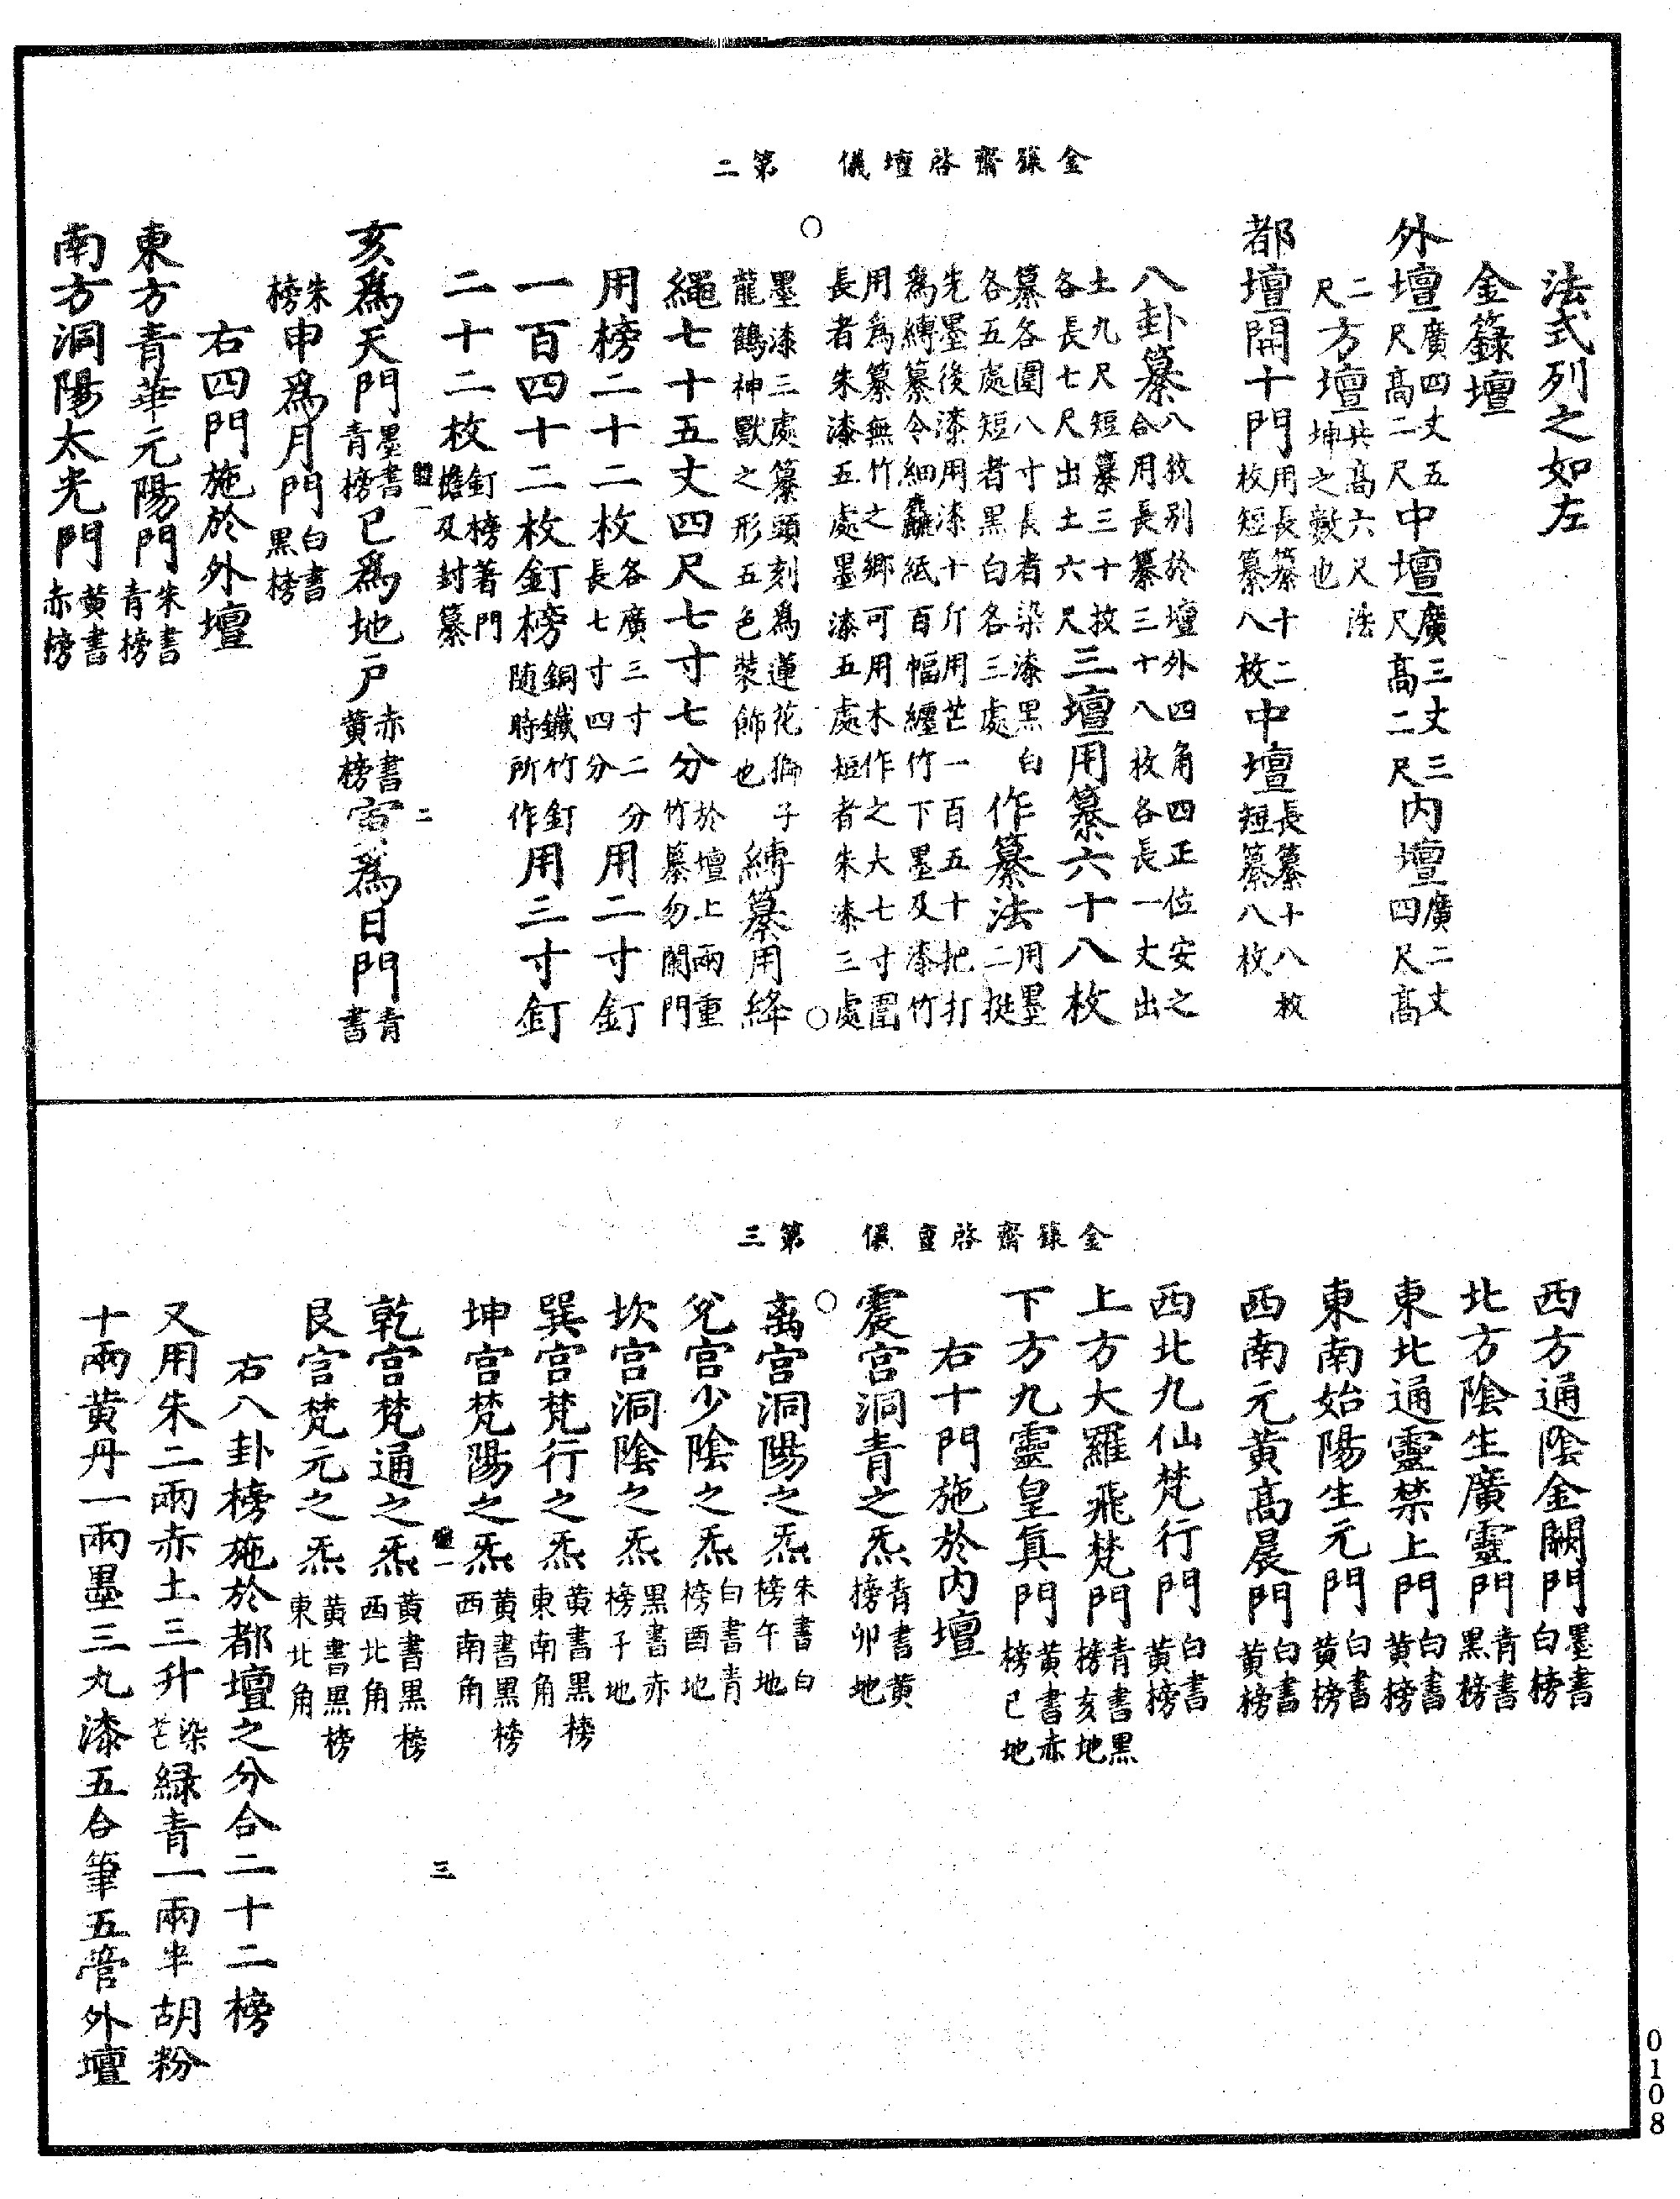 金籙齋啓壇儀　第二
法式列之如左
金籙壇
外壇廣四丈五尺高二尺中壇廣三丈三尺高二尺内壇廣二丈四尺高
二尺共高六尺法方壇坤之數也
都壇開十門用長纂十二枚短纂八枚中壇長纂十八枚短纂八枚
八卦纂八枚別於壇外四角四正位安之合用長纂三十八枚各長一丈出
土九尺短纂三十枚各長七尺出土六尺三壇用纂六十八枚
纂各圍八寸長者染漆黑白各五處短者黑白各三處作纂法用墨二挺
先墨後漆用漆十斤用芒一百五十把打爲縛纂令細麤紙百幅纏竹下墨及漆竹
用爲纂無竹之鄉可用木作之大七寸圍長者朱漆五處墨漆五處短者朱漆三處
墨漆三處纂頭刻爲蓮花獅子龍鶴神獸之形五色裝飾也縛纂用絳
繩七十五丈四尺七寸七分於壇上兩重竹纂勿闌門
用榜二十二枚各廣三寸二分長七寸四分用二寸釘
一百四十二枚釘榜銅鐵竹釘随時所作用三寸釘
二十二枚釘榜著門擔及封纂
亥爲天門墨書青榜巳爲地戸赤書黄榜寅爲日門青書
朱榜申爲月門白書黒榜
右四門施於外壇
東方青華元陽門朱書青榜
南方洞陽太光門黄書赤榜
二
金籙齋啓壇儀　第三
西方通陰金闕門墨書白榜
北方陰生廣靈門青書黒榜
東北通靈禁上門白書黄榜
東南始陽生元門白書黄榜
西南元黄高晨門白書黄榜
西北九仙梵行門白書黄榜
上方大羅飛梵門青書黒榜亥地
下方九靈皇真門黄書赤榜巳地
右十門施於内壇
震宫洞青之炁青書黄榜卯地
离宫洞陽之炁朱書白榜午地
兊宫少陰之炁白書青榜酉地
坎宫洞陰之炁黒書赤榜子地
巽宫梵行之炁黄書黒榜東南角
坤宫梵陽之炁黄書黒榜西南角
乾宫梵通之炁黄書黒榜西北角
艮宫梵元之炁黄書黒榜東北角
右八卦榜施於都壇之分合二十二榜
又用朱二兩赤土三升染芒緑青一兩半胡粉
十兩黄丹一兩墨三丸漆五合筆五管外壇
三
0108